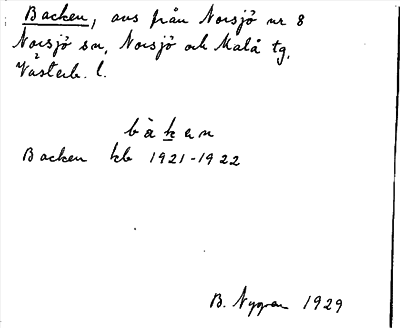 Backen, avs från Norsjö nr 8
Norsjö sn, Norsjö och Malå tg,
Västerb. l.
bàken
Backen kb 1921-1922
B. Nygren 1929